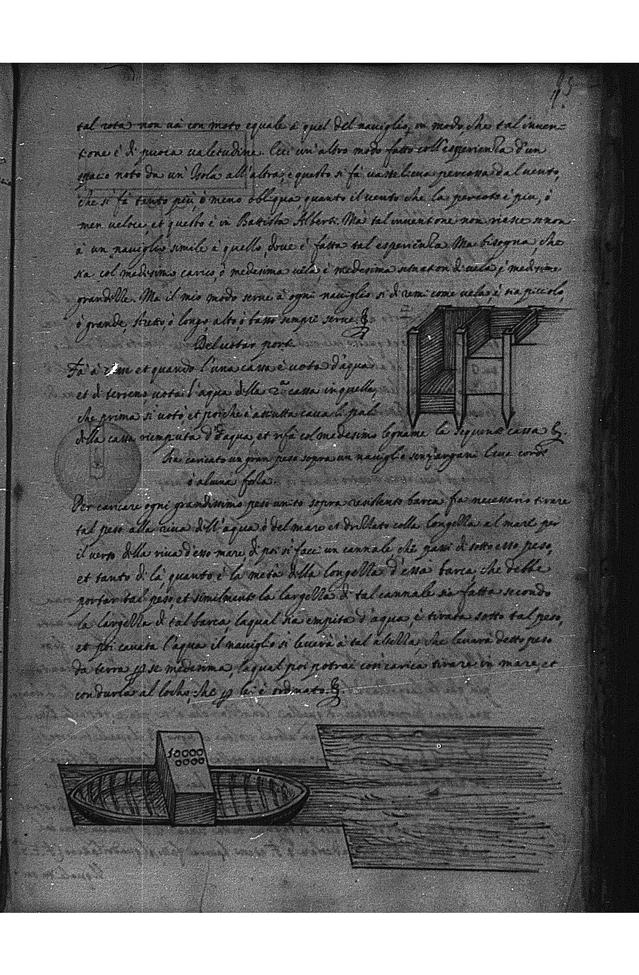 95.
tal rota non và con moto equale à quel del naviglio, in modo che tal inven-
tione è di puoca valetudine. Ecci un'altro modo fatto coll'esperienza d'un
spacio noto da un'Isola all'altra, e questo si fà percossa dal vento,
che si fà tanto più, ò meno obliqua quanto il vento che la percote è più, ò
men veloce, et questo è in Battista Alberti. Ma tal inventione non riesce se non
à un naviglio simile à quello, dove è fatta tal esperienza. Ma bisogna che
sia col medesimo carico, è medesima vela, è medesima di vela, è medesime
grandezze. Ma il mio modo serve à ogni naviglio si di remi come vela, è sia piccolo,
ò grande, stretto, ò longo, alto ò basso sempre serve.
Del votar porti
Fà à et quando l'una cassa è vota d'aqua
et di terreno vota l'aqua della 2.a cassa in quella,
che prima si votò et poiche è asciutta cava li pali
della cassa riempiuta d'aqua et rifà col medesimo legname la sequente cassa
Sia caricato un gran peso sopra un naviglio senz'argani lieve corde
ò alcuna
Per caricare ogni grandissimo peso unito sopra barca fia necessario tirare
tal peso alla riva dell'aqua ò del mare et drizzato colla longezza al mare per
il verso della riva d'esso mare, di poi si face un cannale che passi di sotto esso peso,
et tanto di là, quanto è la metà della longezza d'essa barca che debbe
portar tal peso et similmente la largezza di tal cannale sia fatta secondo
la largezza di tal barca laqual sia empita d'aqua è tirata sotto tal peso,
et poi cavata l'aqua il naviglio si leverà à tal altezza che levarà detto peso
da terra per se medesima, laqual poi potrai cosi carica tirare in mare, et
condurla al locho, che per lei è ordinato.